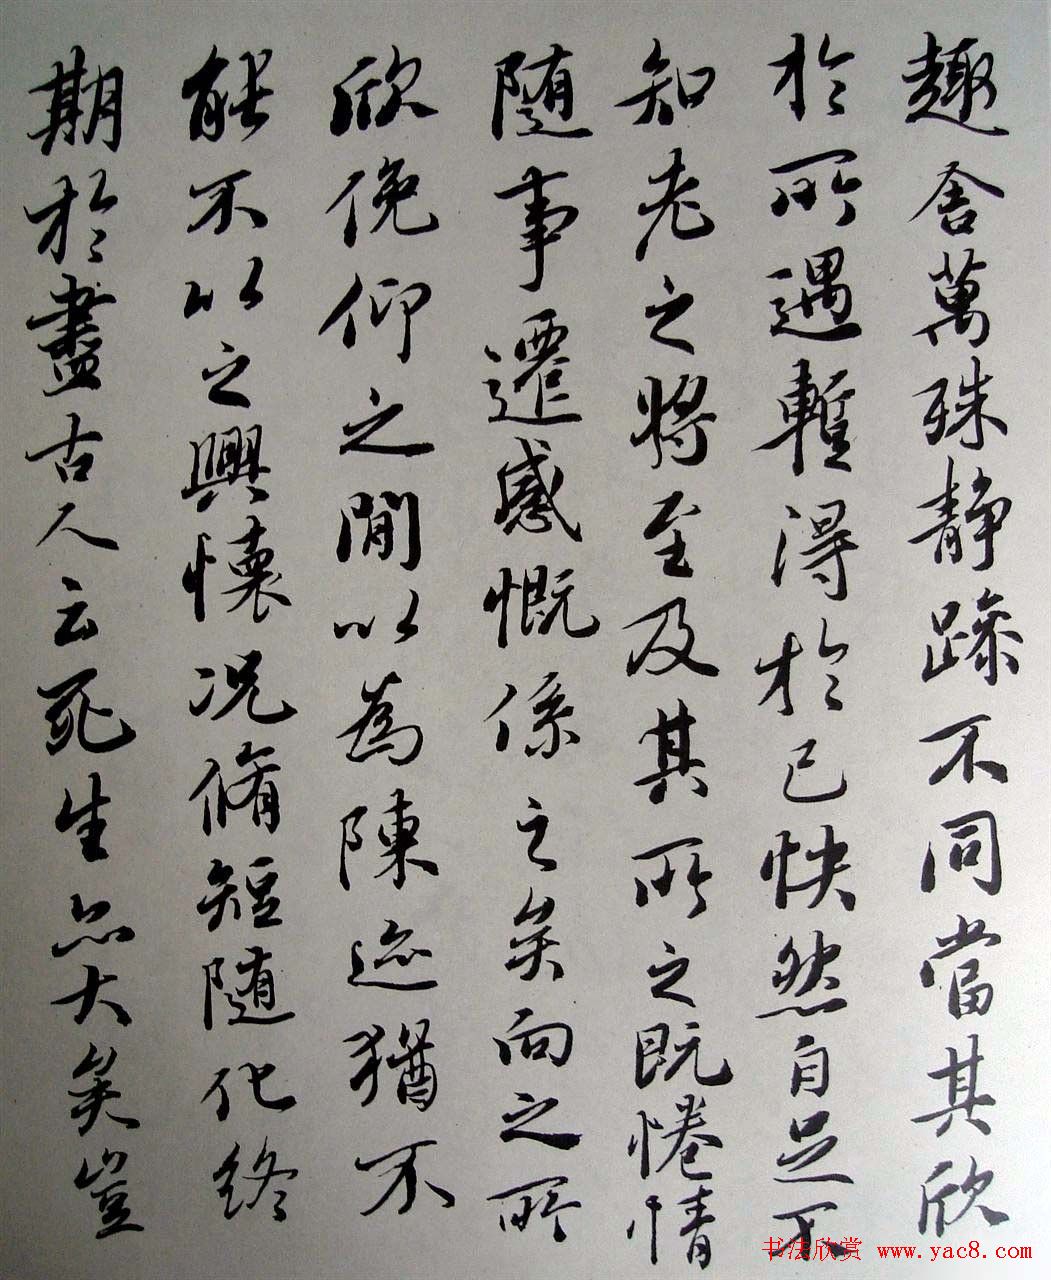 趣舍萬殊静躁不同當其欣
於所遇暫得於己快然自足不
知老之将至及其所之既惓情
随事遷感慨係之矣向之所
欣俛仰之閒以為陳迹猶不
能不以之興懷况脩短随化終
期於盡古人云死生亦大矣豈
书法欣赏 www.yac8.com